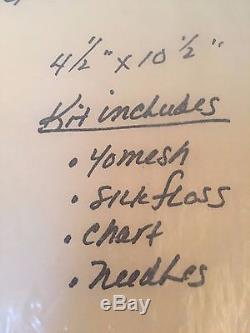 4 1/2" x 10 1/2"
Kit includes
• 40mesh
• silkfloss
• chart
• needles